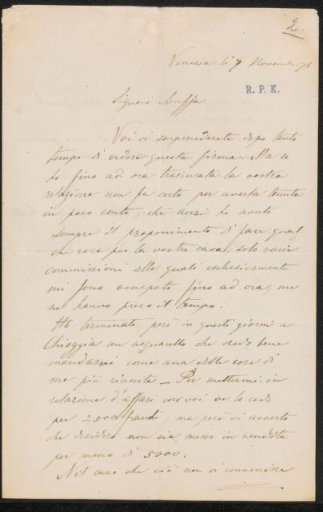 2
Venezia li 9 Novembre 78
R. P. K.
Signori Buffa
Voi vi sorprenderete dopo tanto
tempo di vedere questa firma. Ma se
ho fino ad ora trascurata la vostra
relazione non fu certo per averla tenuta
in poco conto, che anzi ho avuto
sempre il proponimento di fare qual
che cosa per la vostra casa, solo varie
commissioni alle quali esclusivamente
mi sono occupato fino ad ora, me
ne hanno preso il tempo.
Ho terminato però in questi giorni a
Chioggia un acquarello che credo bene
mandarvi come una delle cose di
me più riuscite — Per mettermi in
relazione d'affari con voi ve lo cedo
per 2500 franchi; ma però vi avverto
che desidero non sia messo in vendita
per meno di 5000.
Nel caso che ciò non vi convenisse